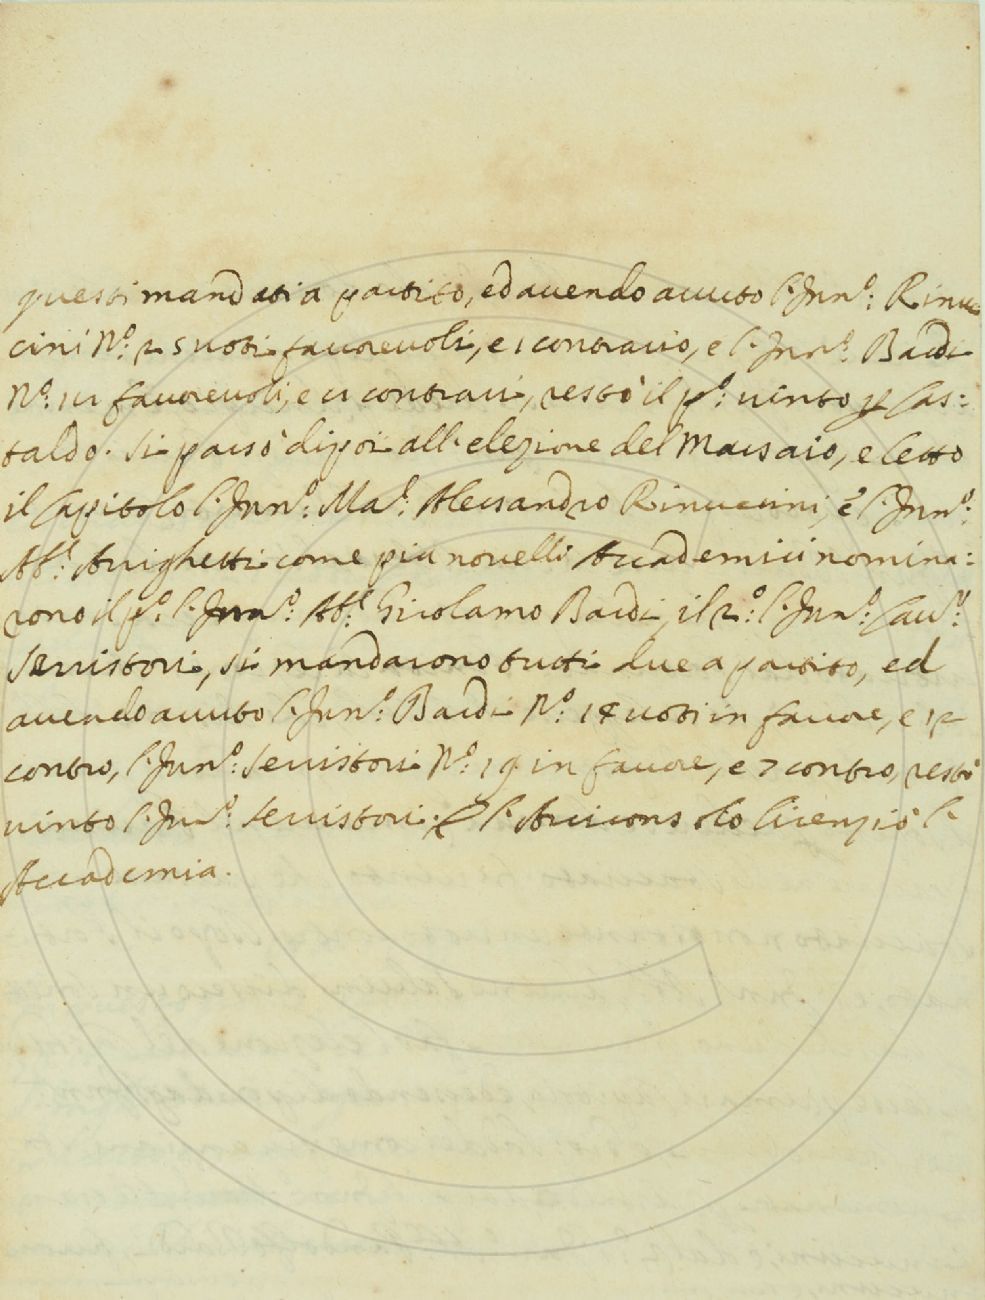 questi mandati a partito, ed avendo avuto l'Inn.º: Rinuc
cini N.º: 25 voti favorevoli, e 1 contrario, e l'Inn.º: Bardi
N.º: 15 favorevoli, e 11 contrarii, restò il p.º: vinto p Cas:
taldo. Si passò dipoi all'elezione del Massaio, e letto
il Capitolo l'Inn.º: Ma.: Alessandro Rinuccini, e l'Inn.º:
Ab.: Arrighetti come più novelli Accademici nomina:
rono il p.º: l'Inn.º: Ab.: Girolamo Bardi, il 2.º: l'Inn.º: Cav.:
Serristori, si mandarono tutti due a partito, ed
avendo avuto l'Inn.º: Bardi N.º: 14 voti in favore, e 12
contro, l'Inn.º: Serristori N.º: 19 in favore, e 7 contro, restò
vinto l'Inn.º: Serristori. E l'Arciconsolo licenziò l'
Accademia.